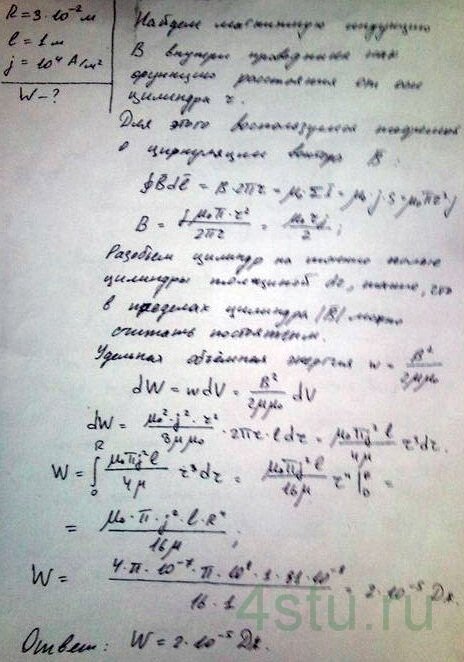 R = 3·10⁻² м
l = 1 м
j = 10⁴ А/м²
W - ?
Найдем магнитную индукцию
B внутри проводника как
функцию расстояния от оси
цилиндра r.
Для этого воспользуемся теоремой
о циркуляции вектора B:
∮Bdl = B·2πr = μ₀·ΣI = μ₀·j·S = μ₀πr²j
B = jμ₀π·r²/2πr = μ₀rj/2;
Разобьем цилиндр на тонкие полые
цилиндры толщиной dr, такие, что
в пределах цилиндра |B| можно
считать постоянным.
Удельная объёмная энергия w = B²/2μμ₀
dW = wdV = B²/2μμ₀ dV
dW = μ₀²·j²·r²/8μμ₀ · 2πr·l dr = μ₀πj²l/4μ r³dr.
W = ∫₀ᴿ μ₀πj²l/4μ r³dr = μ₀πj²l/16μ r⁴|₀ᴿ =
= μ₀·π·j²·l·R⁴/16μ;
W = 4·π·10⁻⁷·π·10⁸·1·81·10⁻⁸/16·1 = 2·10⁻⁵ Дж.
4stu.ru
Ответ: W = 2·10⁻⁵ Дж.